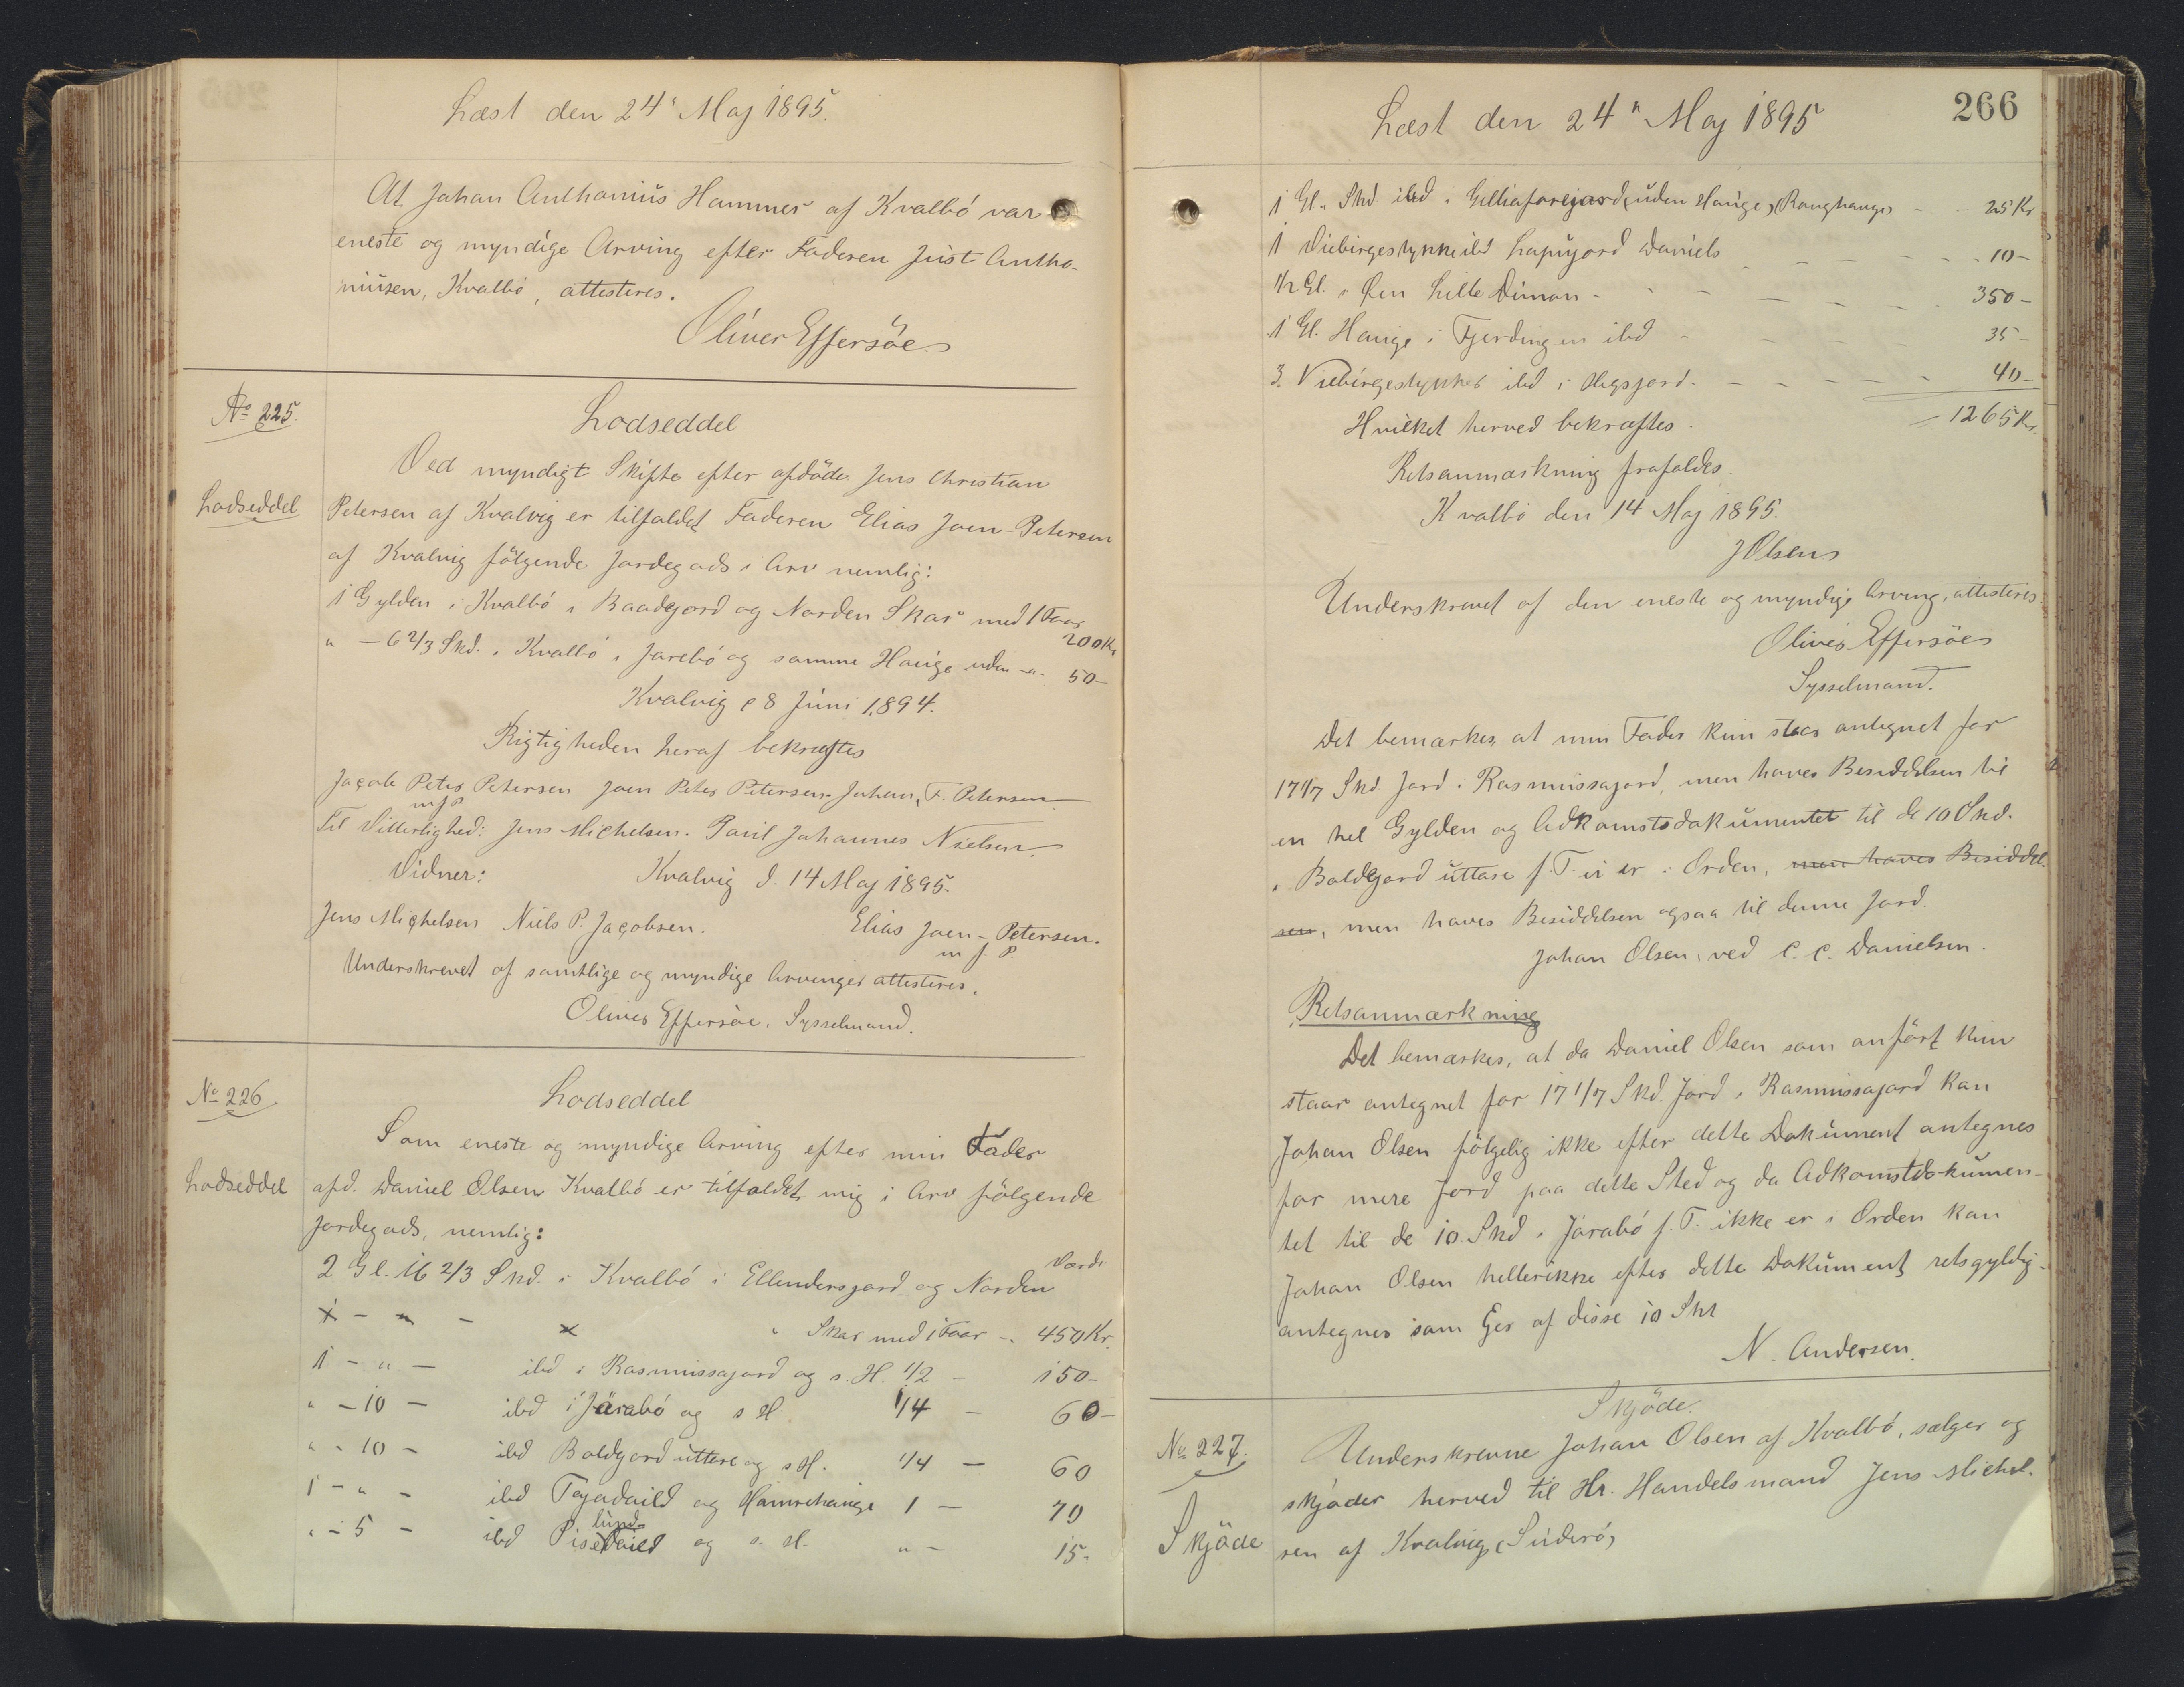 Læst den 24" Maj 1895.
At Johan Anthonius Hammer af Kvalbø var
eneste og myndige Arving efter Faderen Just Antho-
niusen, Kvalbö, attesteres.
Oliver Effersöe
No 225.
Lodseddel
Lodseddel
Ved myndigt Skifte efter afdöde Jens Christian
Petersen af Kvalvig er tilfaldet Faderen Elias Joen-Petersen
af Kvalvig fölgende Jordegods i Arv nemlig:
1 Gylden i Kvalbö i Baadgjord og Norden Skar med 1 Faar
200 Kr
" - 6 2/3 Skd. i Kvalbö i Jarebö og samme Hauge uden -"- 50-
Kvalvig d 8 Juni 1894.
Rigtigheden heraf bekræftes
Jacob Peter Petersen Joen Peter Petersen. Johan F. Petersen
m f P
Til Vitterlighed: Jens Michelsen. Poul Johannes Nielsen.
Vidner: Kvalvig d. 14 Maj 1895.
Jens Michelsen Niels P. Jacobsen. Elias Joen-Petersen.
m f. P.
Underskrevet af samtlige og myndige Arvinger attesteres.
Oliver Effersöe. Sysselmand.
No 226
Lodseddel
Lodseddel
Som eneste og myndige Arving efter min Fader
afd. Daniel Olsen Kvalbö er tilfaldet mig i Arv fölgende
Jordegods, nemlig:
Værdi
2 Gl. 16 2/3 Skd. i Kvalbö i Ellendersgjord og Norden
Skar med 1 Faar - 450 Kr.
1 - " - ibd i Rasmussagjord og s. H. 1/2 - 150-
" - 10 - ibd i Järabö og s H. 1/4 - 60-
" - 10 - ibd Boldgjord uttare og s H. 1/4 - 60
1 - " - ibd Tojadaild og Hamrehauge 1 - 70
lund-
" - 5 - ibd Pisedaild og s. H. " - 15-
266
Læst den 24" Maj 1895
1 Gl. " Skd ibd i (uden Hauge) - 25 Kr
1 Viebirgestykke ibd Daniels - 10-
1/2 Gl. i Öen Lille Dimon - 350-
1 Gl. Hauge i Fjerdingen ibd - 35-
3 Viebirgestykker ibd i - 40-
1265 Kr.
Hvilket herved bekræftes.
Retsanmærkning frafaldes.
Kvalbö den 14 Maj 1895.
J Olsen
Underskrevet af den eneste og myndige Arving, attesteres.
Oliver Effersöe
Sysselmand.
Det bemærkes, at min Fader kun staar antegnet for
17 1/7 Skd. Jord i Rasmussagjord, men haves Besiddelsen til
en hel Gylden og Adkomstsdokumentet til de 10 Skd.
i Boldgjord uttare f. T. ei er i Orden, men haves Besiddel-
sen, men haves Besiddelsen ogsaa til denne Jord.
Johan Olsen, ved C. C. Danielsen.
Retsanmærkning
Det bemærkes, at da Daniel Olsen som anfört kun
staar antegnet for 17 1/7 Skd. Jord i Rasmussagjord kan
Johan Olsen fölgelig ikke efter dette Dokument antegnes
for mere Jord paa dette Sted og da Adkomstdokumen-
tet til de 10 Skd. i Järabö f. T. ikke er i Orden kan
Johan Olsen hellerikke efter dette Dokument retsgyldig-
antegnes som Ejer af disse 10 Skd
N. Andersen.
No 227.
Skjöde
Skjöde.
Underskrevne Johan Olsen af Kvalbö, sælger og
skjöder herved til Hr. Handelsmand Jens Michel-
sen af Kvalvig, Suderö,